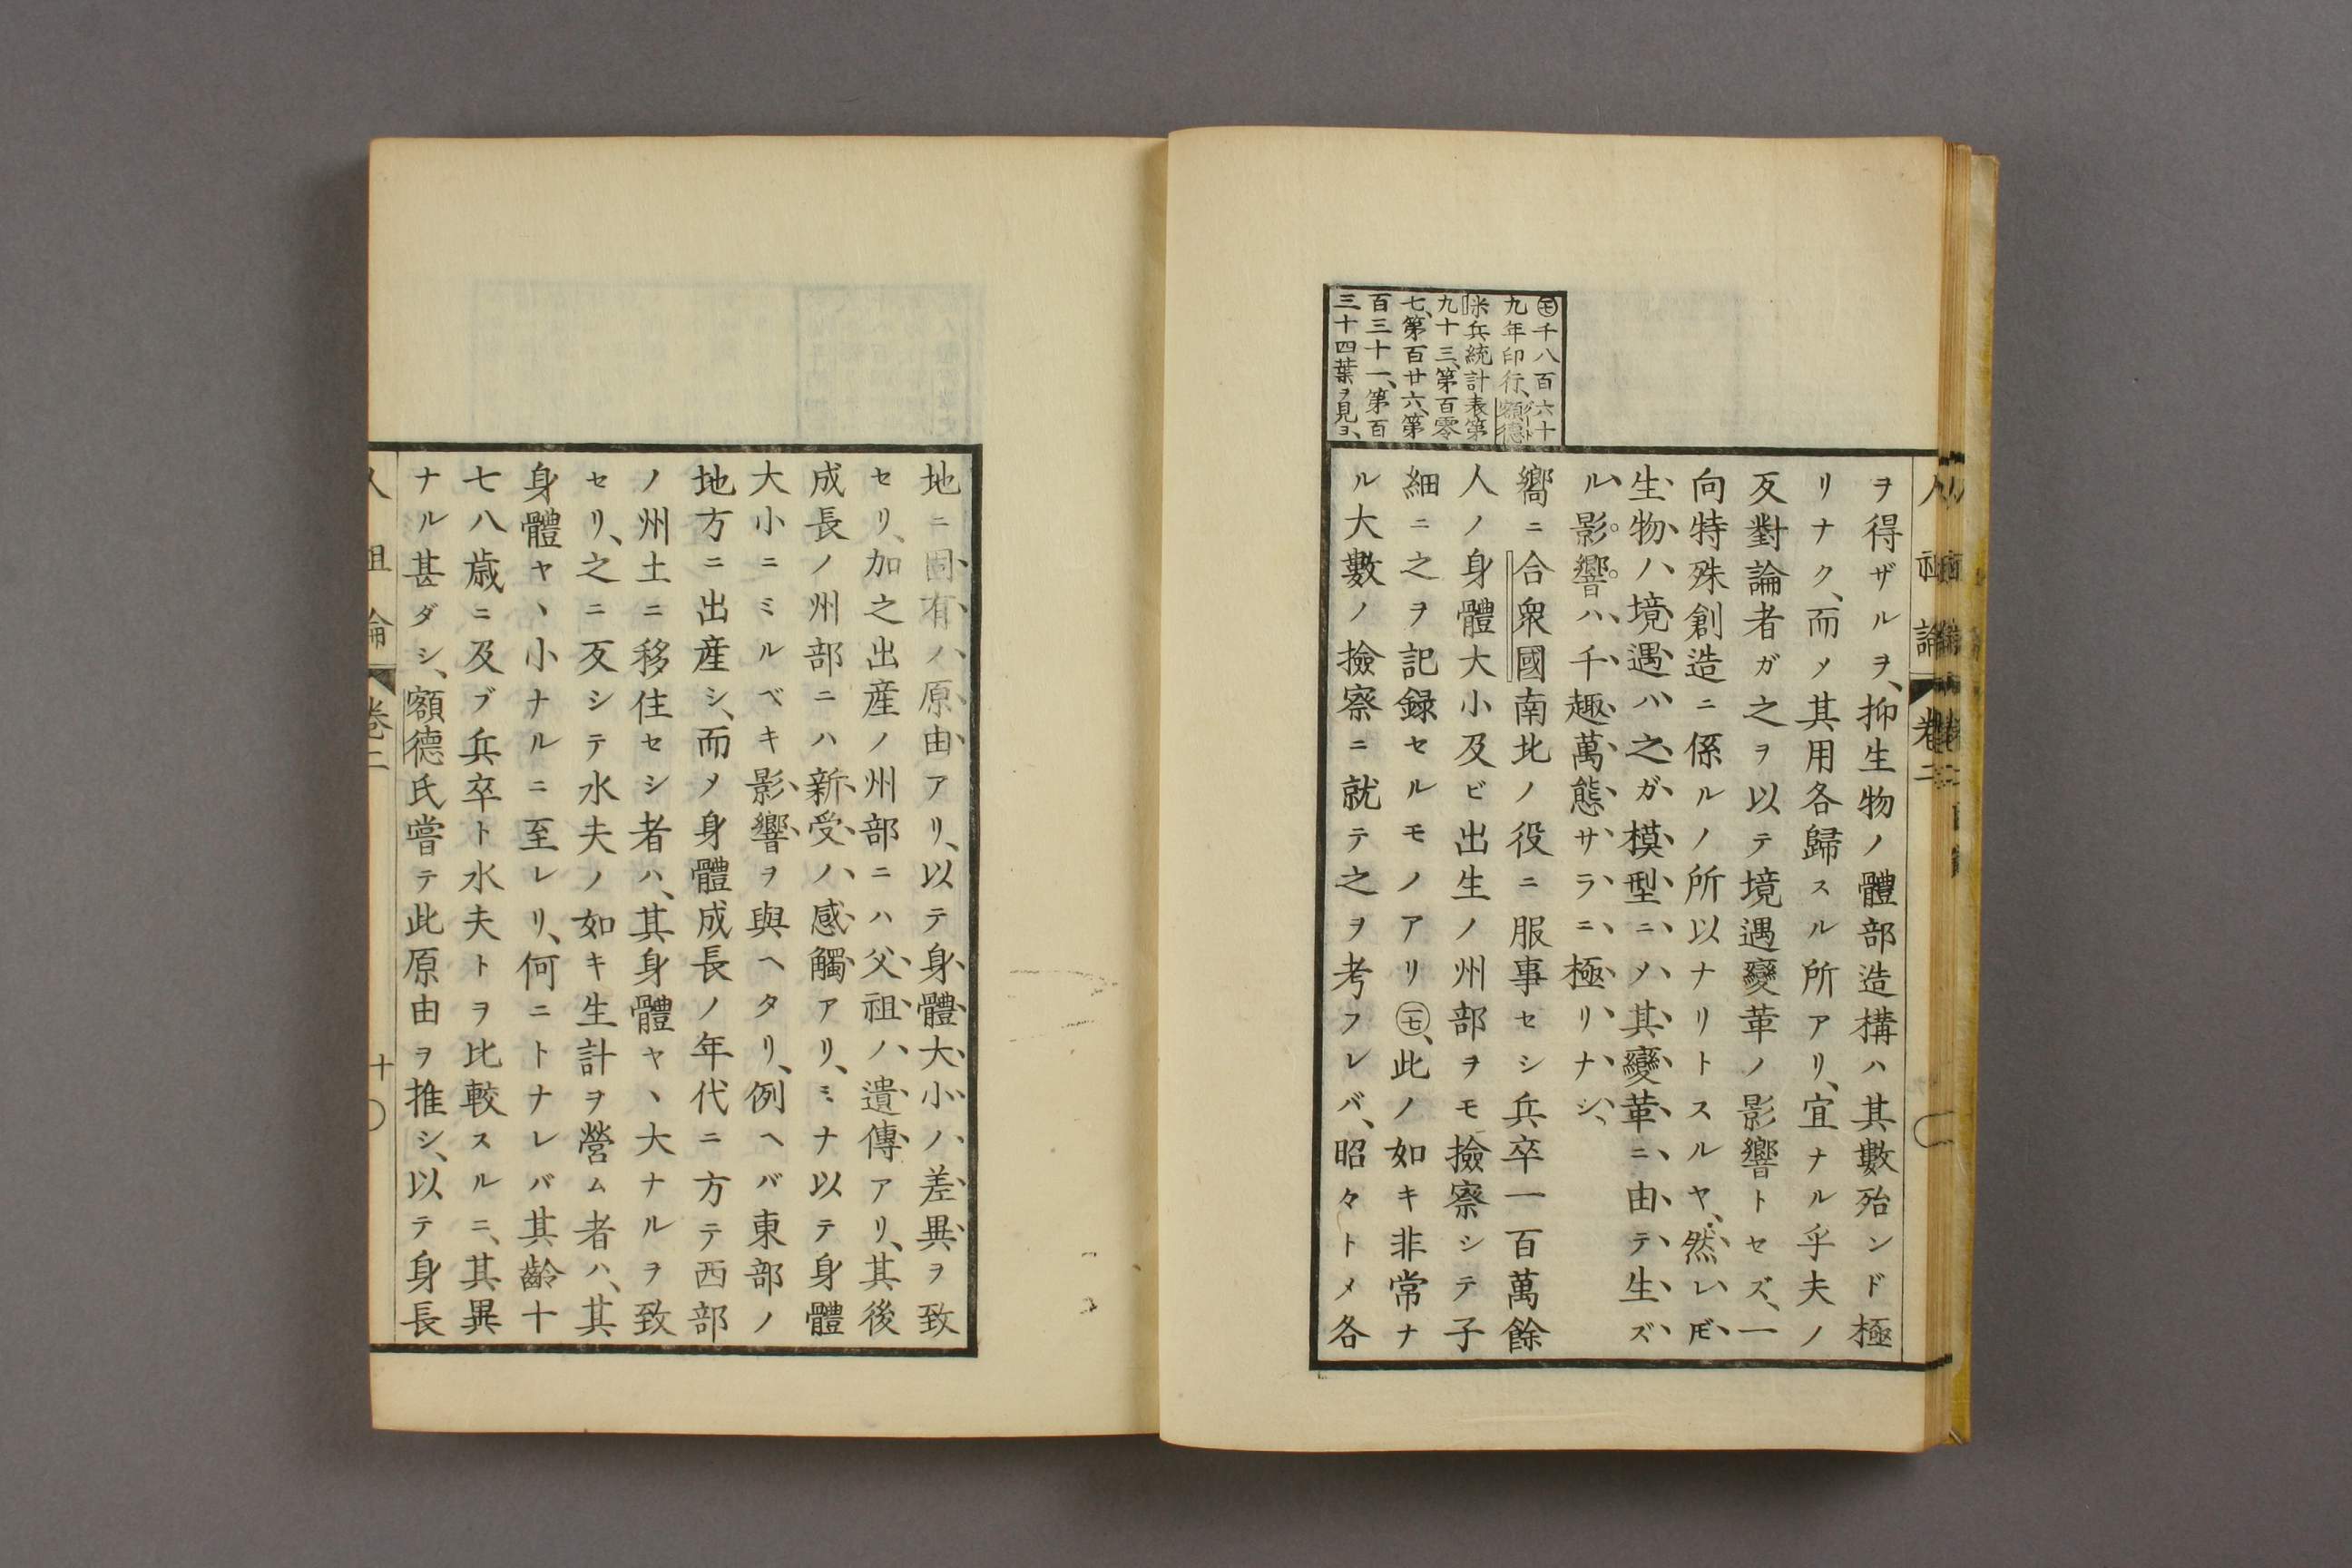 人祖論 卷二
㊆千八百六十
九年印行、額德
米兵統計表第
九十三、第百零
七、第百廿六、第
百三十一、第百
三十四葉ヲ見ヨ、
ヲ得ザルヲ、抑生物ノ體部造構ハ其數殆ンド極
リナク、而メ其用各歸スル所アリ、宜ナル乎夫ノ
反對論者ガ之ヲ以テ境遇變革ノ影響トセズ、一
向特殊創造ニ係ルノ所以ナリトスルヤ、然レ𪜈、
生物ハ境遇ハ之ガ模型ニメ、其變革ニ由テ生ズ
ル影響ハ千趣萬態サラニ極リナシ、
嚮ニ合衆國南北ノ役ニ服事セシ兵卒一百萬餘
人ノ身體大小及ビ出生ノ州部ヲモ撿察シテ子
細ニ之ヲ記録セルモノアリ、此ノ如キ非常ナ
ル大數ノ撿察ニ就テ之ヲ考フレバ、昭々トメ各
地ニ固有ノ原由アリ、以テ身體大小ノ差異ヲ致
セリ、加之出産ノ州部ニハ父祖ノ遺傳アリ、其後
成長ノ州部ニハ新受ノ感觸アリ、ミナ以テ身體
大小ニミルベキ影響ヲ與ヘタリ、例ヘバ東部ノ
地方ニ出産シ、而メ身體成長ノ年代ニ方テ西部
ノ州土ニ移住セシ者ハ、其身體ヤヽ大ナルヲ致
セリ、之ニ反シテ水夫ノ如キ生計ヲ營ム者ハ、其
身體ヤヽ小ナルニ至レリ、何ニトナレバ其齡十
七八歳ニ及ブ兵卒ト水夫トヲ比較スルニ、其異
ナル甚ダシ、額德氏嘗テ此原由ヲ推シ、以テ身長
人祖論 卷二 十